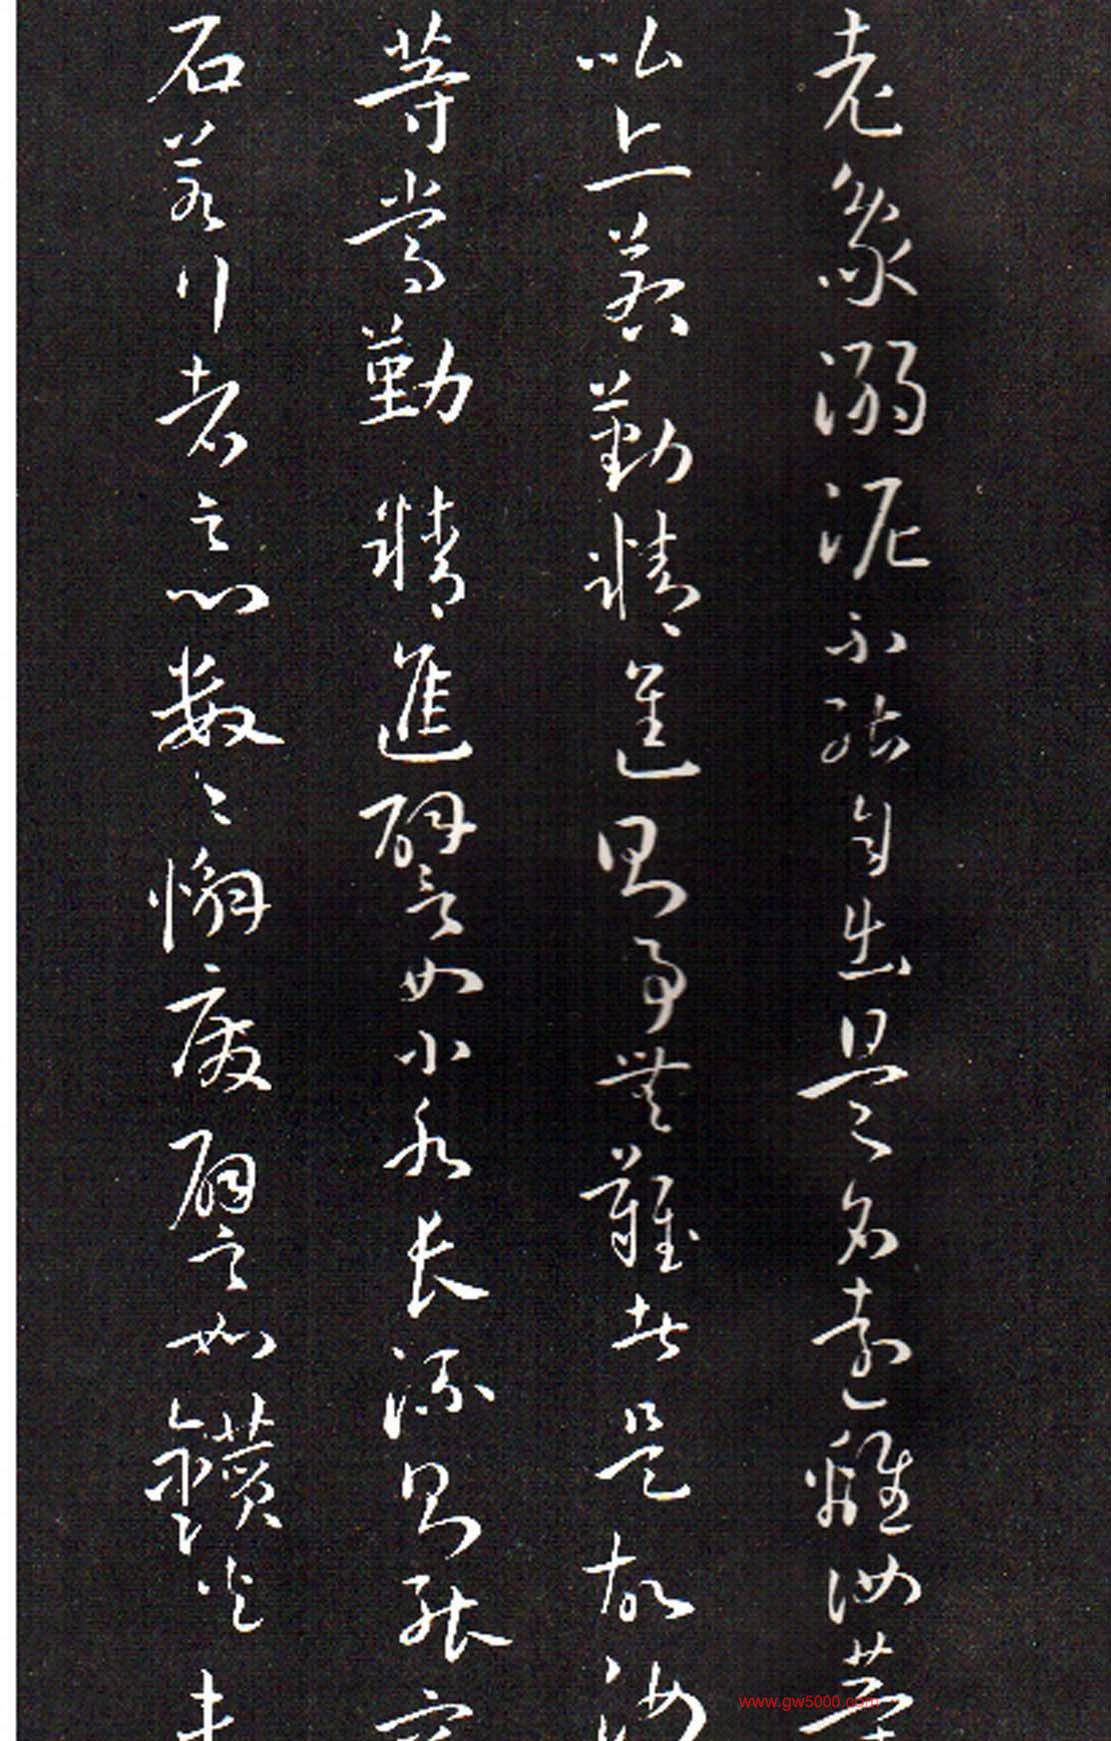 老象溺泥不能自出是名遠離汝等
比丘若勤精進則事無難者是故汝
等常勤精進譬如小水長流則能穿
石若行者之心數々懈廢譬如鑽火未
www.gw5000.com